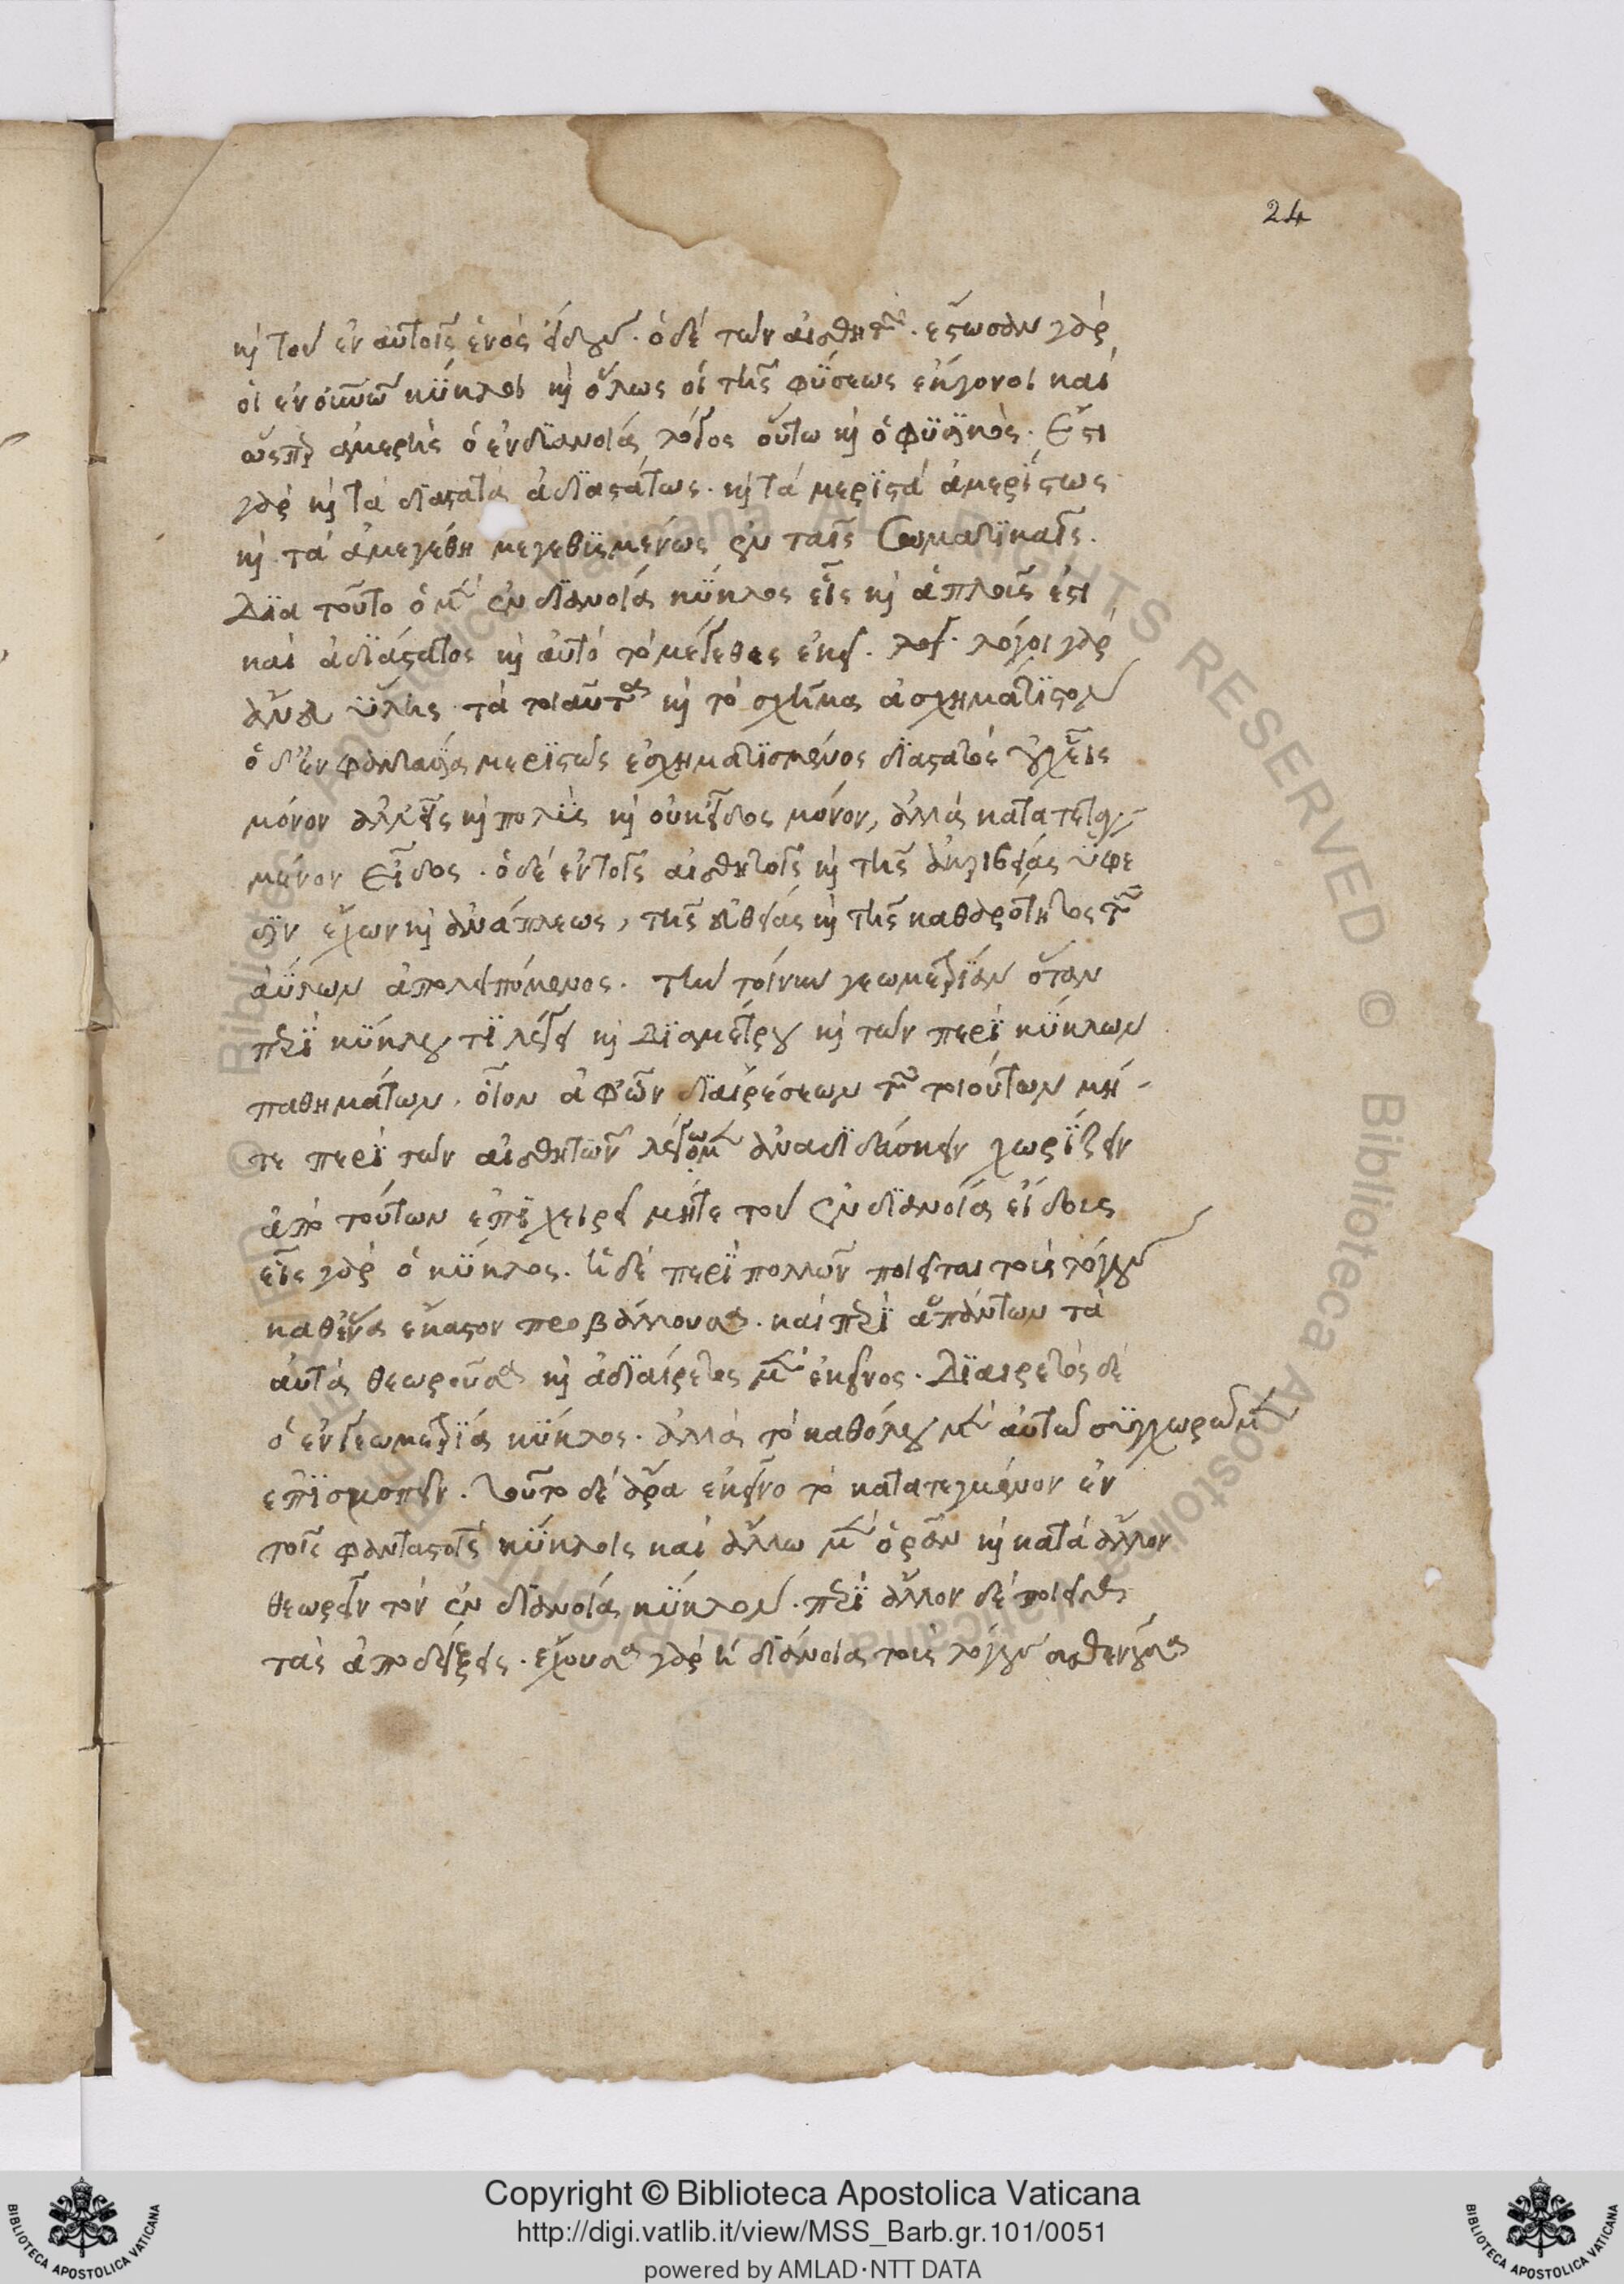 24
καὶ τοῦ ἐν αὐτοῖς ἑνὸς εἴδους. ὁ δὲ τῶν αἰσθητῶν. ἔστωσαν γὰρ
οἱ ἐν οὐρανῶ κύκλοι καὶ ὅλως οἱ τῆς φύσεως ἔκγονοι καὶ
ὥσπερ ἀμερὴς ὁ ἐν διανοία λόγος οὕτω καὶ ὁ φυσικὸς. Ἔστι
γὰρ καὶ τὰ διαστατὰ ἀδιαστάτως. καὶ τὰ μεριστὰ ἀμερίστως
καὶ τὰ ἀμεγέθη μεγεθυσμένως ἐν ταῖς Σωματικαῖς.
Διὰ τοῦτο ὁ μὲν ἐν διανοία κύκλος εἷς καὶ ἁπλοῦς ἐστι
καὶ ἀδιάστατος καὶ αὐτὸ τὸ μέγεθος ἐκεῖ. λόγοι γὰρ
ἄνευ ὕλης τὰ τοιαῦτα καὶ τὸ σχῆμα ἀσχημάτιστον
ὁ δ' ἐν φαντασία μεριστὸς ἐσχηματισμένος διαστατὸς οὐχ εἷς
μόνον ἀλλ' εἷς καὶ πολὺς καὶ οὐκ εἶδος μόνον, ἀλλὰ κατατεταγ-
μένον Εἶδος. ὁ δὲ ἐν τοῖς αἰσθητοῖς καὶ τῆς ἀκριβείας ὕφε
σιν ἔχων καὶ ἀνάπλεως, τῆς εὐθείας καὶ τῆς καθαρότητος τῶν
ἀΰλων ἀπολειπόμενος. τὴν τοίνυν γεωμετρίαν ὅταν
περὶ κύκλου τὶ λέγη καὶ Διαμέτρου καὶ τῶν περὶ κύκλων
παθημάτων. οἷον ἀφῶν διαιρέσεων τῶν τοιούτων μή-
τε περὶ τῶν αἰσθητῶν λέγομεν ἀναδιδάσκειν χωρίζειν
ἀπὸ τούτων ἐπιχειρεῖ μήτε τοῦ ἐν διανοία εἴδους
εἷς γὰρ ὁ κύκλος. ἡ δὲ περὶ πολλῶν ποιεῖται τοὺς λόγους
καθ' ἕνα ἕκαστον προβάλλουσα. καὶ περὶ ἁπάντων τὰ
αὐτὰ θεωροῦσα καὶ ἀδιαίρετος μὲν ἐκεῖνος. Διαιρετὸς δὲ
ὁ ἐν γεωμετρία κύκλος. ἀλλὰ τὸ καθόλου μὲν αὐτῶ συγχωροῦμεν
ἐπισκοπεῖν. τοῦτο δὲ ἄρα ἐκεῖνο τὸ κατατεταγμένον ἐν
τοῖς φανταστοῖς κύκλοις καὶ ἄλλω μὲν ὁρᾶν καὶ κατὰ ἄλλον
θεωρεῖν τὸν ἐν διανοία κύκλον. περὶ ἄλλον δὲ ποιεῖσθαι
τὰς ἀποδείξεις. ἔχουσα γὰρ ἡ διάνοια τοὺς λόγους ἀσθενοῦσα
Copyright © Biblioteca Apostolica Vaticana
http://digi.vatlib.it/view/MSS_Barb.gr.101/0051
powered by AMLAD·NTT DATA